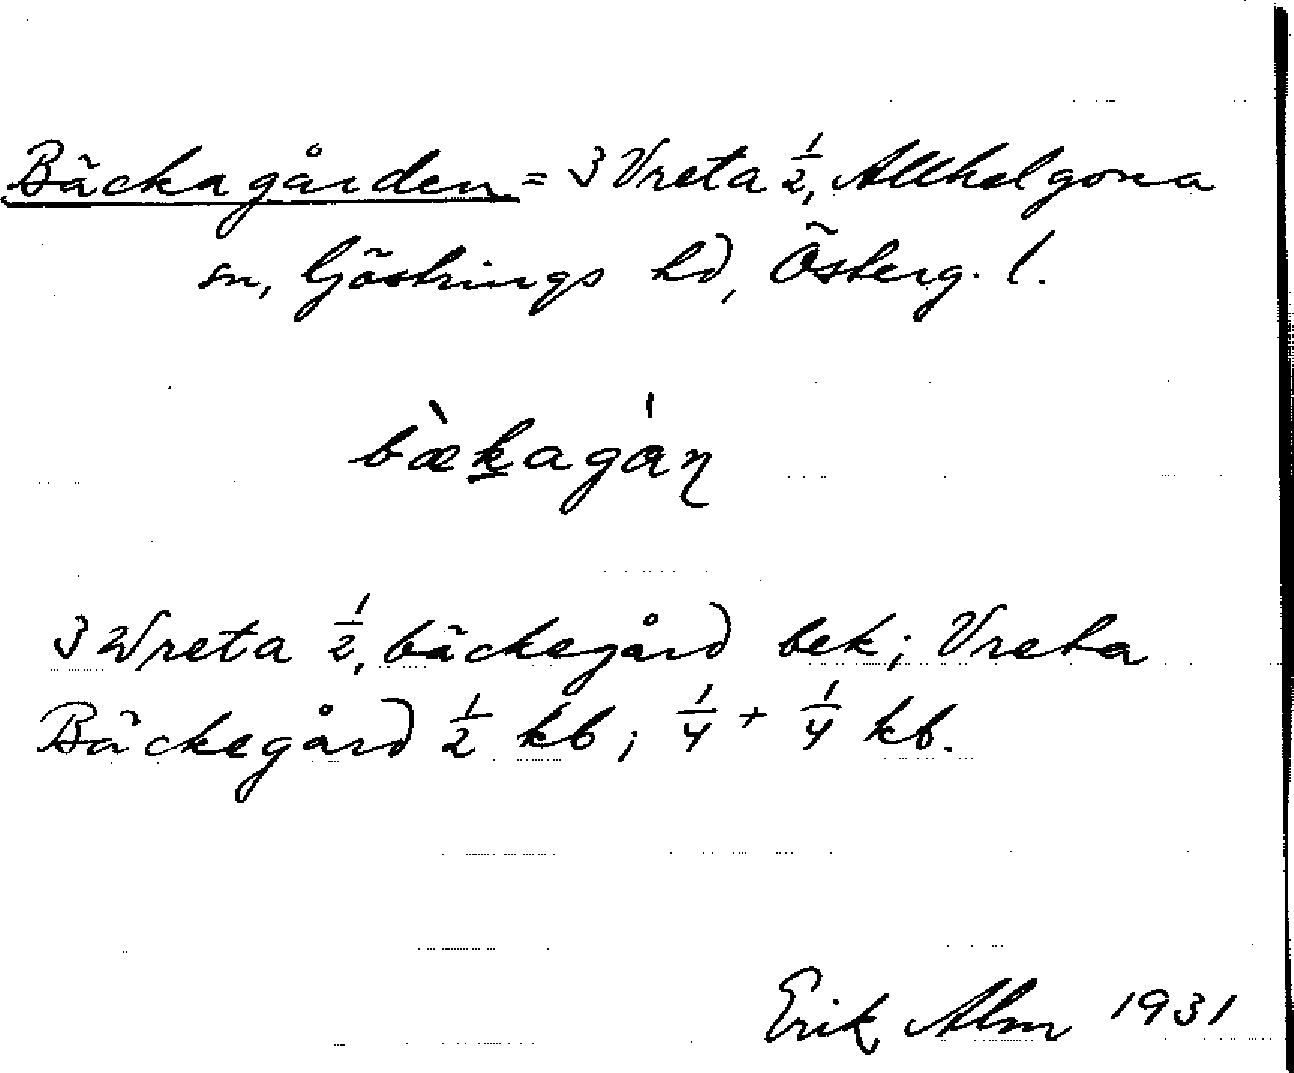 Bäckagården = 3 Vreta 1/2, Allhelgona
sn, Göstrings hd, Österg. l.
bæ̀k̲agán
3 Wreta 1/2, bäckegård bek; Vreta
Bäckegård 1/2 kb; 1/4 + 1/4 kb.
Erik Alm 1931